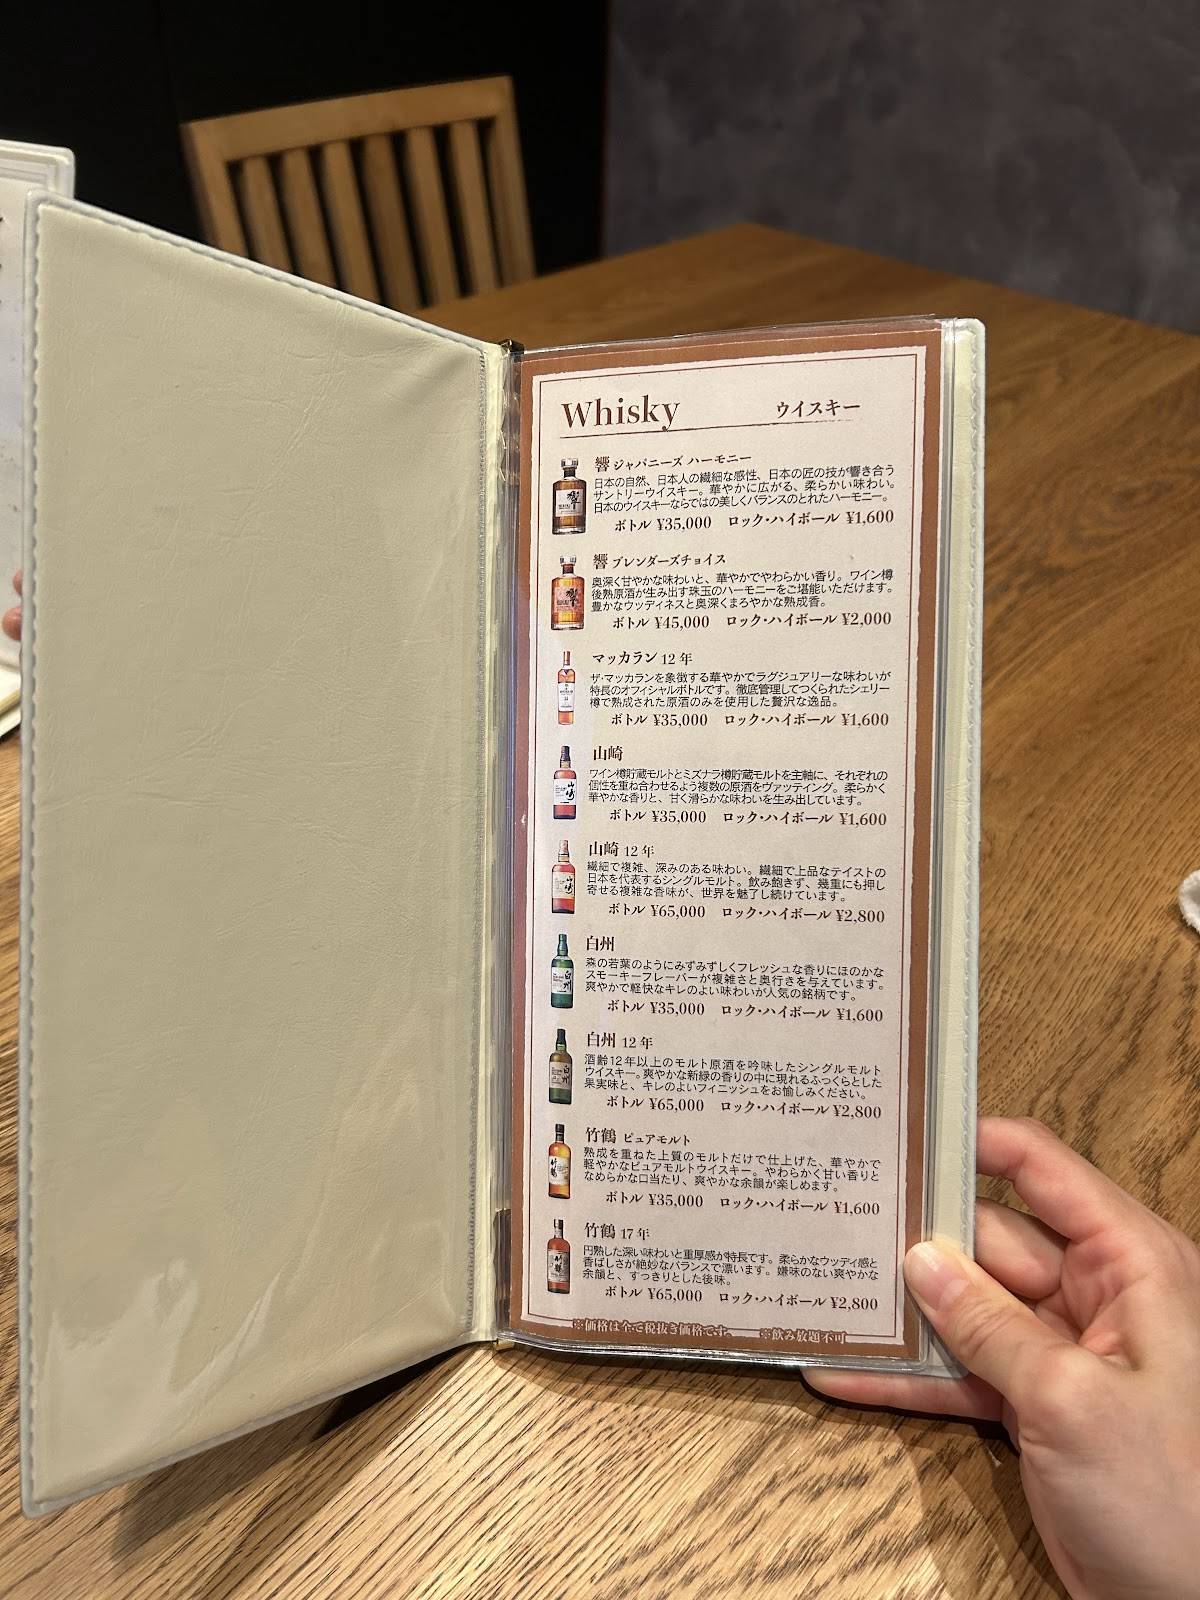 Whisky ウイスキー
響 ジャパニーズ ハーモニー
日本の自然、日本人の繊細な感性、日本の匠の技が響き合う
サントリーウイスキー。華やかに広がる、柔らかい味わい。
日本のウイスキーならではの美しくバランスのとれたハーモニー。
ボトル ¥35,000 ロック・ハイボール ¥1,600
響 ブレンダーズチョイス
奥深く甘やかな味わいと、華やかでやわらかい香り。ワイン樽
後熟原酒が生み出す珠玉のハーモニーをご堪能いただけます。
豊かなウッディネスと奥深くまろやかな熟成香。
ボトル ¥45,000 ロック・ハイボール ¥2,000
マッカラン 12 年
ザ・マッカランを象徴する華やかでラグジュアリーな味わいが
特長のオフィシャルボトルです。徹底管理してつくられたシェリー
樽で熟成された原酒のみを使用した贅沢な逸品。
ボトル ¥35,000 ロック・ハイボール ¥1,600
山崎
ワイン樽貯蔵モルトとミズナラ樽貯蔵モルトを主軸に、それぞれの
個性を重ね合わせるよう複数の原酒をヴァッティング。柔らかく
華やかな香りと、甘く滑らかな味わいを生み出しています。
ボトル ¥35,000 ロック・ハイボール ¥1,600
山崎 12 年
繊細で複雑、深みのある味わい。繊細で上品なテイストの
日本を代表するシングルモルト。飲み飽きず、幾重にも押し
寄せる複雑な香味が、世界を魅了し続けています。
ボトル ¥65,000 ロック・ハイボール ¥2,800
白州
森の若葉のようにみずみずしくフレッシュな香りにほのかな
スモーキーフレーバーが複雑さと奥行きを与えています。
爽やかで軽快なキレのよい味わいが人気の銘柄です。
ボトル ¥35,000 ロック・ハイボール ¥1,600
白州 12 年
酒齢12年以上のモルト原酒を吟味したシングルモルト
ウイスキー。爽やかな新緑の香りの中に現れるふっくらとした
果実味と、キレのよいフィニッシュをお愉しみください。
ボトル ¥65,000 ロック・ハイボール ¥2,800
竹鶴 ピュアモルト
熟成を重ねた上質のモルトだけで仕上げた、華やかで
軽やかなピュアモルトウイスキー。やわらかく甘い香りと
なめらかな口当たり、爽やかな余韻が楽しめます。
ボトル ¥35,000 ロック・ハイボール ¥1,600
竹鶴 17 年
円熟した深い味わいと重厚感が特長です。柔らかなウッディ感と
香ばしさが絶妙なバランスで漂います。嫌味のない爽やかな
余韻と、すっきりとした後味。
ボトル ¥65,000 ロック・ハイボール ¥2,800
※価格は全て税抜き価格です。 ※飲み放題不可